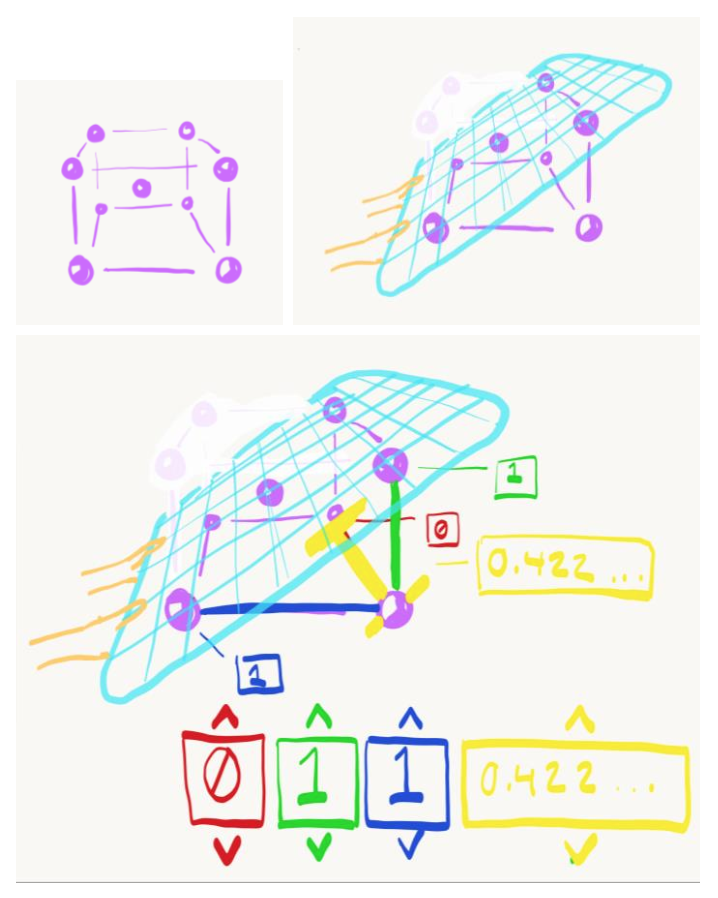 1
0
0.422 ...
1
0 1 1 0.422 ...